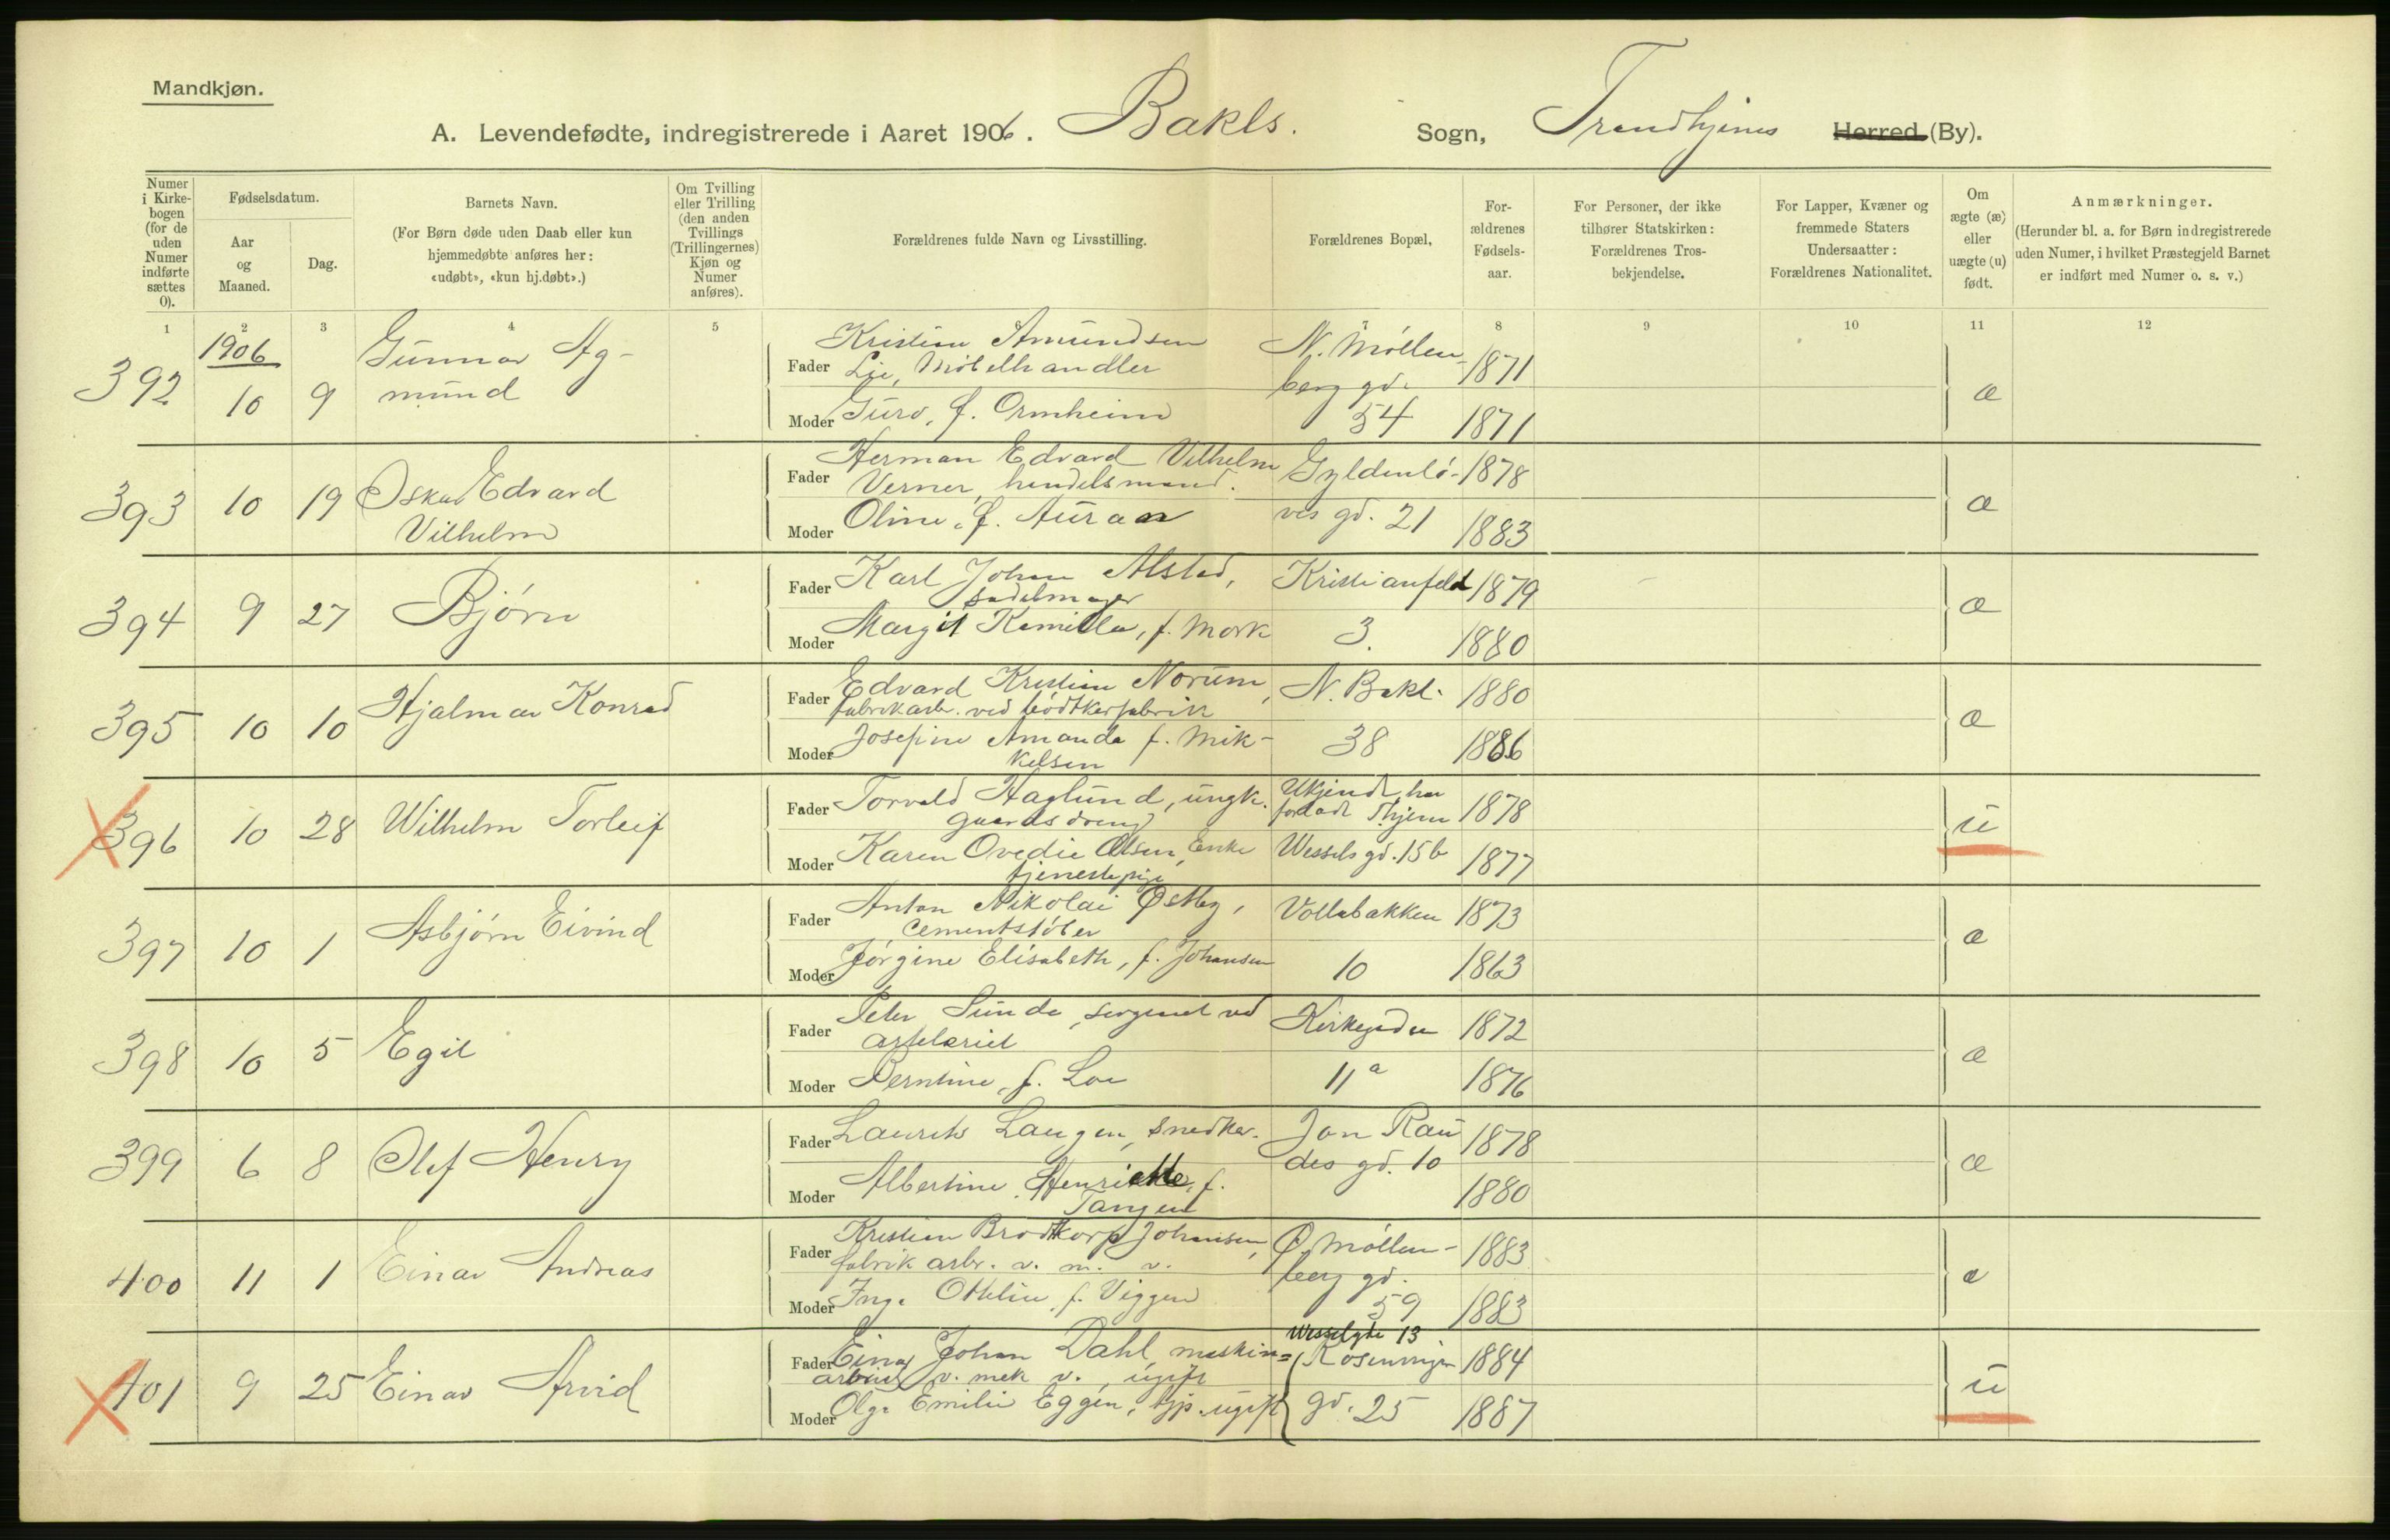 Mandkjøn.
A. Levendefødte, indregistrerede i Aaret 1906. Bakls. Sogn, Trondhjems Herred (By).
Numer i Kirkebogen (for de uden Numer indførte sættes 0).
Fødselsdatum.
Aar og Maaned.
Dag.
Barnets Navn.
(For Børn døde uden Daab eller kun hjemmedøbte anføres her: «udøbt», «kun hj.døbt».)
Om Tvilling eller Trilling (den anden Tvillings (Trillingernes) Kjøn og Numer anføres).
Forældrenes fulde Navn og Livsstilling.
Forældrenes Bopæl,
Forældrenes Fødselsaar.
For Personer, der ikke tilhører Statskirken: Forældrenes Trosbekjendelse.
For Lapper, Kvæner og fremmede Staters Undersaatter: Forældrenes Nationalitet.
Om ægte (æ) eller uægte (u) født.
Anmærkninger.
(Herunder bl. a. for Børn indregistrerede uden Numer, i hvilket Præstegjeld Barnet er indført med Numer o. s. v.)
1 2 3 4 5 6 7 8 9 10 11 12
1906
392 10 9 Gunnar Ag-
mund
Fader Kristian Amundsen
Lie, Møbelhandler
N. Møllen-
berg gd. 54
1871
Moder Guro, f. Ormheim 1871
æ
393 10 19 Oskar Edvard
Vilhelm
Fader Herman Edvard Vilhelm
Verner, handelsmand.
Gyldenlø-
ves gd. 21
1878
Moder Oline, f. Auran 1883
æ
394 9 27 Bjørn
Fader Karl Johan Alstad,
sadelmager
Kristianfeld
3.
1879
Moder Margit Kamilla, f. Mork 1880
æ
395 10 10 Hjalmar Konrad
Fader Edvard Kristian Norum,
fabrikarb. ved bødtkerfabrik
N. Bakl.
38
1880
Moder Josefine Amanda f. Mik-
kelsen
1886
æ
396 10 28 Wilhelm Torleif
Fader Torvald Haglund, ungk.
gaardsdreng
Ukjendt, har
forladt Thjem
1878
Moder Karen Ovedie Olsen, Enke
tjenestepige
Wessels gd. 15b
1877
u
397 10 1 Asbjørn Eivind
Fader Anton Nikolai Østby,
cementstøber
Vollabakken
10
1873
Moder Jørgine Elisabeth, f. Johansen 1863
æ
398 10 5 Egil
Fader Peter Sunde, sergeant ved
artileriet
Kirkegaden
11a
1872
Moder Berntine, f. Loe 1876
æ
399 6 8 Olaf Henry
Fader Laurits Langen, snedker.
Jon Rau
des gd. 10
1878
Moder Albertine Henriette, f.
Tangen
1880
æ
400 11 1 Einar Andreas
Fader Kristian Brodtkorp Johansen,
fabrik arb. v. m. v.
Ø. Møllen-
berg gd.
59
1883
Moder Inga Othelie f. Viggen 1883
æ
401 9 25 Einar Arvid
Fader Einar Johan Dahl, maskin=
arbeider v. mek v., ugift
Wesselgde 13
Rosenvinge
gd. 25
1884
Moder Olga Emilie Eggen, tjp. ugift 1887
u